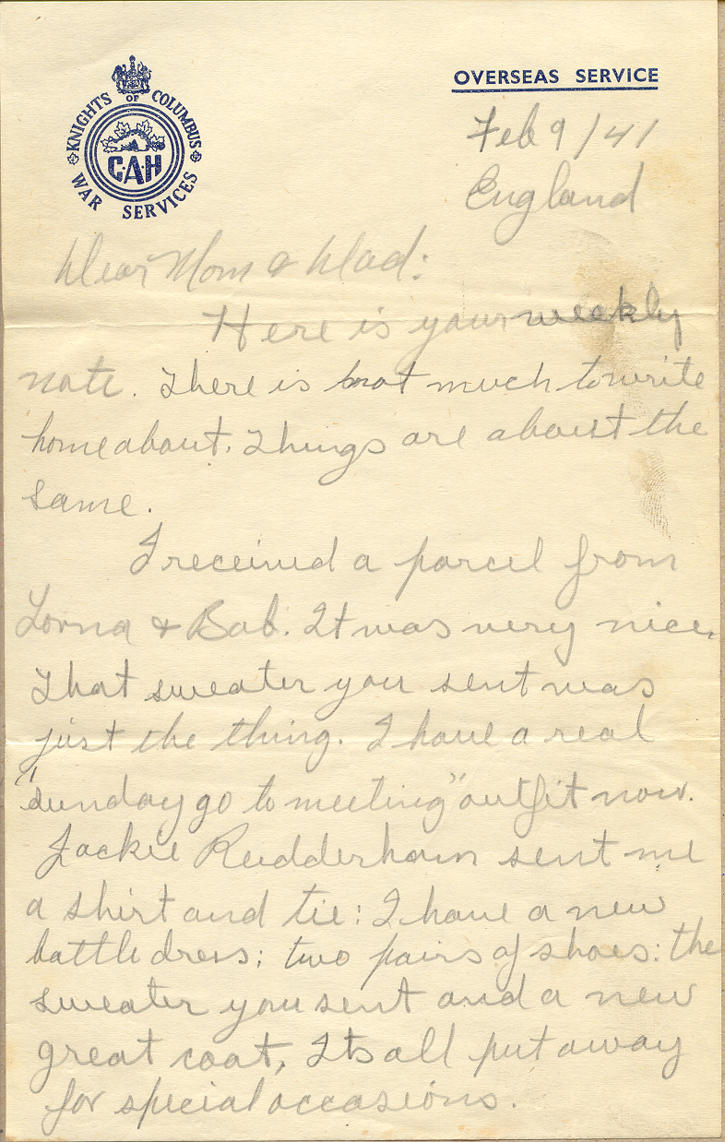 OVERSEAS SERVICE
KNIGHTS OF COLUMBUS
C.A.H
WAR SERVICES
Feb 9/41
England
Dear Mom & Dad:
Here is your weekly
note. There is not much to write
home about. Things are about the
same.
I received a parcel from
Lorna & Bob. It was very nice.
That sweater you sent was
just the thing. I have a real
"Sunday go to meeting" outfit now.
Jackie Rudderham sent me
a shirt and tie: I have a new
battle dress; two pairs of shoes: the
sweater you sent and a new
great coat, Its all put away
for special occasions.